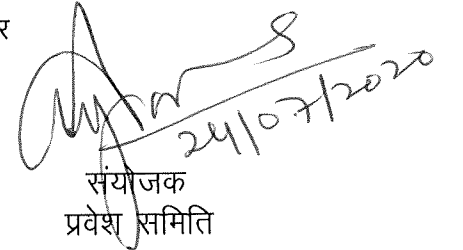 र
24/07/2020
संयोजक
प्रवेश समिति